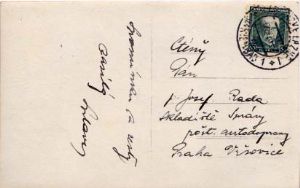 Vzpomínku z cesty
zasílá
Ctěný
Pan
Josef Rada
Skladiště Správy
pošt. autodopravy
Praha Vršovice